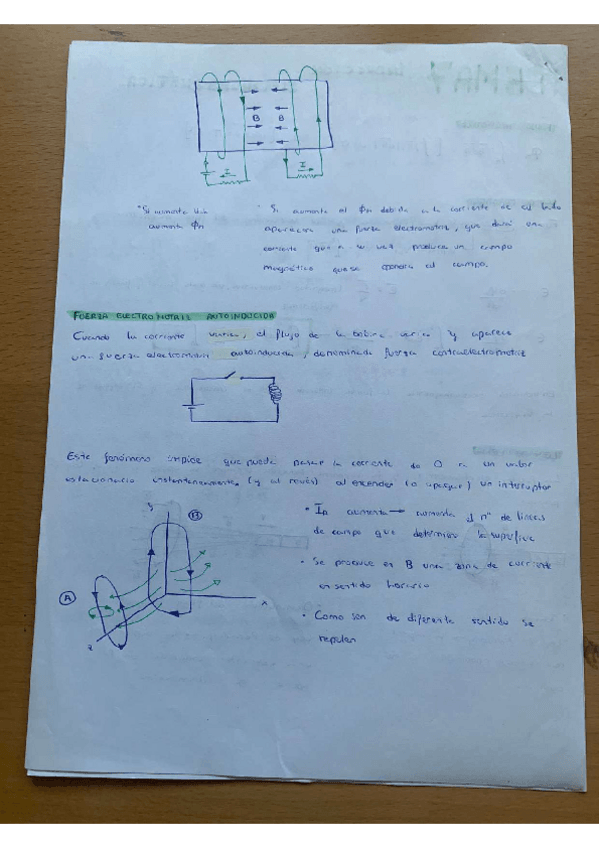 B B
I I
"Si aumenta
aumenta ϕm
" Si aumenta el ϕm debido a la corriente de el lado
aparecera una fuerza electromotriz, que dará una
corriente que a su vez produce un campo
magnético que se opondra al campo.
FUERZA ELECTROMOTRIZ AUTOINDUCIDA
Cuando la corriente varia, el flujo de la bobina varia y aparece
una fuerza electromotriz autoinducida, denominada fuerza contraelectromotriz
Este fenómeno impide que pueda pasar la corriente de 0 a un valor
estacionario instantaneamente (y al revés) al encender (o apagar) un interruptor
y
B
A
x
z
· IA aumenta → aumenta el nº de lineas
de campo que determina la superficie
· Se produce en B una de corriente
en sentido horario
· Como son de diferente sentido se
repelen